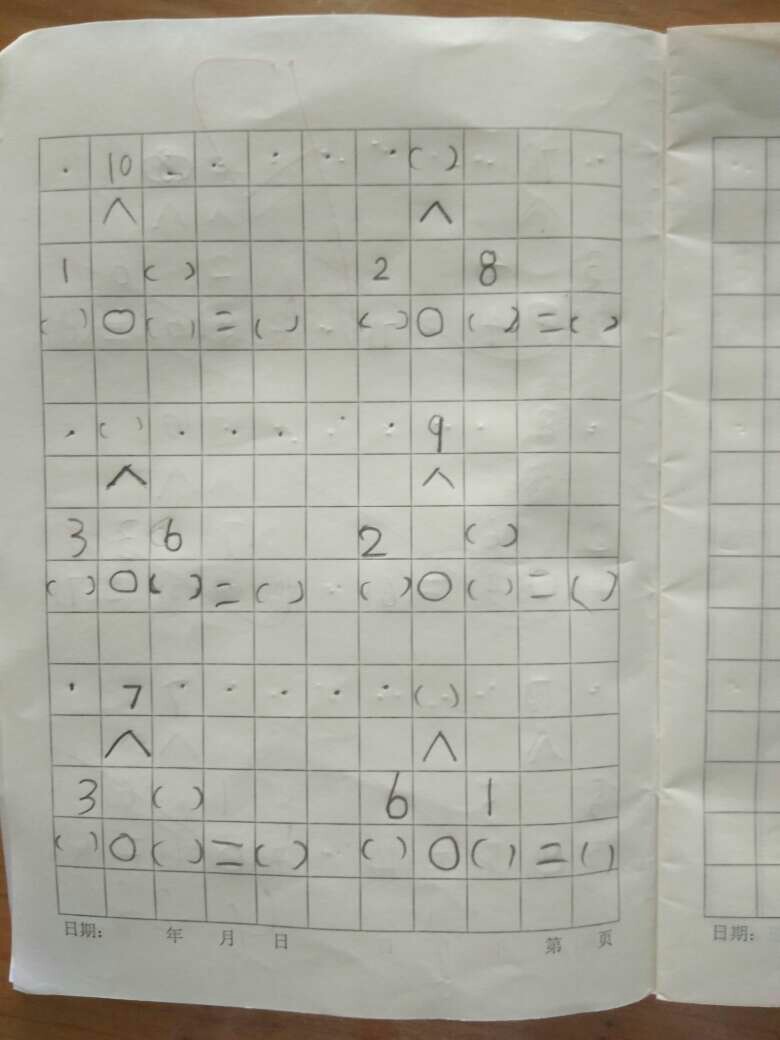 10 ( )
∧ ∧
1 ( ) 2 8
( )○( )=( ) ( )○( )=( )
( ) 9
∧ ∧
3 6 2 ( )
( )○( )=( ) ( )○( )=( )
7 ( )
∧ ∧
3 ( ) 6 1
( )○( )=( ) ( )○( )=( )
日期: 年 月 日 第 页
日期: